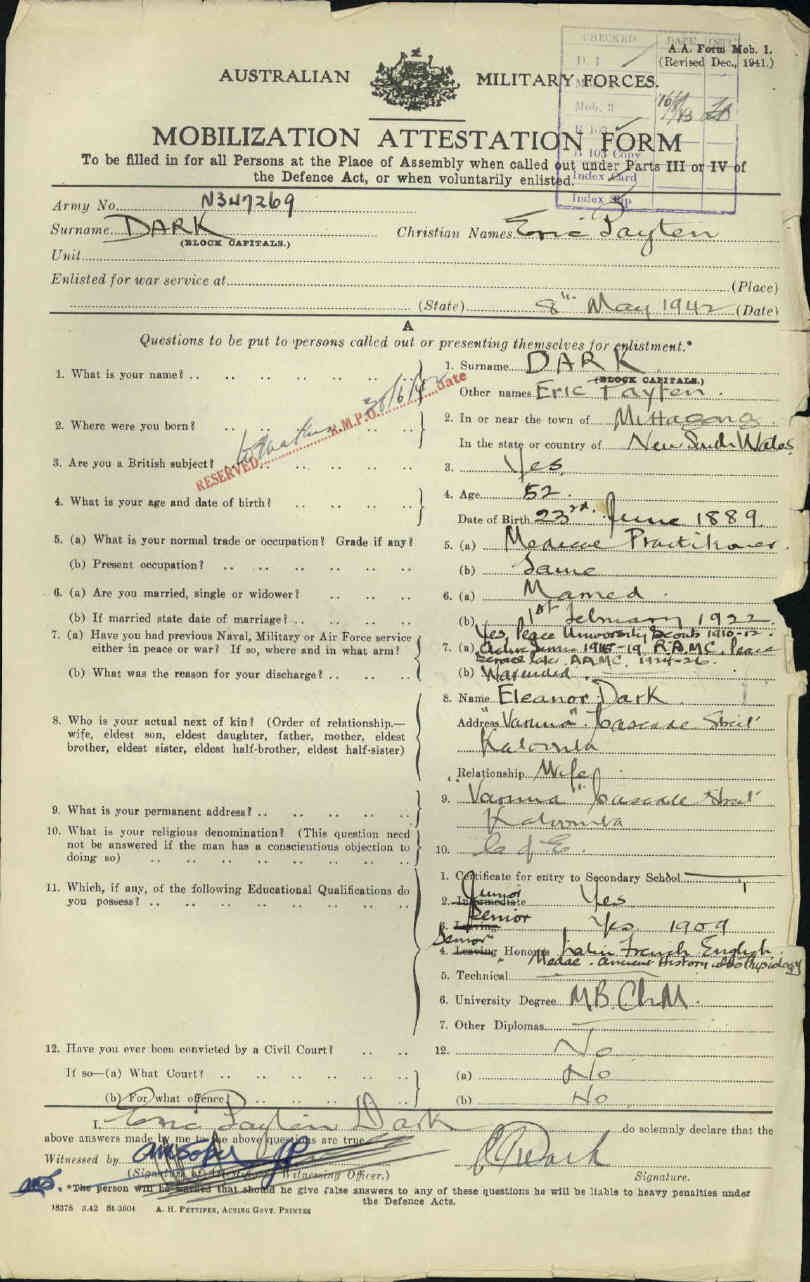 CHECKED DATE INIT.
D. 1
Mob. 3
B 103
B 103 Copy
Index Card
Index Slip
A.A. Form Mob. 1.
(Revised Dec., 1941.)
AUSTRALIAN MILITARY FORCES.
MOBILIZATION ATTESTATION FORM
To be filled in for all Persons at the Place of Assembly when called out under Parts III or IV of
the Defence Act, or when voluntarily enlisted.
Army No. N347269
Surname DARK Christian Names Eric Payten
(BLOCK CAPITALS.)
Unit
Enlisted for war service at (Place)
(State) 8th May 1942 (Date)
A
Questions to be put to persons called out or presenting themselves for enlistment.*
1. What is your name? 1. Surname DARK
(BLOCK CAPITALS.)
Other names Eric Payten
RESERVED R.M.P.O. date
2. Where were you born? 2. In or near the town of Mittagong
In the state or country of New South Wales
3. Are you a British subject? 3. Yes
4. What is your age and date of birth? 4. Age 52
Date of Birth 23rd June 1889
5. (a) What is your normal trade or occupation? Grade if any? 5. (a) Medical Practitioner
(b) Present occupation? (b) Same
6. (a) Are you married, single or widower? 6. (a) Married
(b) If married state date of marriage? (b) 1st February 1922
7. (a) Have you had previous Naval, Military or Air Force service
either in peace or war? If so, where and in what arm?
7. (a) Yes, Peace University Scouts 1910-12
Active Service 1915-19 R.A.M.C. Peace
Service A.A.M.C. 1924-26
(b) What was the reason for your discharge? (b) War ended
8. Who is your actual next of kin? (Order of relationship.—
wife, eldest son, eldest daughter, father, mother, eldest
brother, eldest sister, eldest half-brother, eldest half-sister)
8. Name Eleanor Dark
Address "Varuna" Cascade Street
Katoomba
Relationship Wife
9. What is your permanent address? 9. "Varuna" Cascade Street
Katoomba
10. What is your religious denomination? (This question need
not be answered if the man has a conscientious objection to
doing so) 10. C of E
11. Which, if any, of the following Educational Qualifications do
you possess?
1. Certificate for entry to Secondary School
Junior
2. Intermediate Yes
Senior
3. Leaving Yes 1909
Senior
4. Leaving Honours Latin French English
Medal - Ancient History also Physiology
5. Technical
6. University Degree M.B. Ch.M.
7. Other Diplomas
12. Have you ever been convicted by a Civil Court? 12. No
If so—(a) What Court? (a) No
(b) For what offence? (b) No
I, Eric Payten Dark do solemnly declare that the
above answers made by me to the above questions are true.
Witnessed by E P Dark
(Signature of Witnessing Officer.) Signature.
*The person will be warned that should he give false answers to any of these questions he will be liable to heavy penalties under
the Defence Acts.
18378 3.42 A. H. PETTIFER, ACTING GOVT. PRINTER